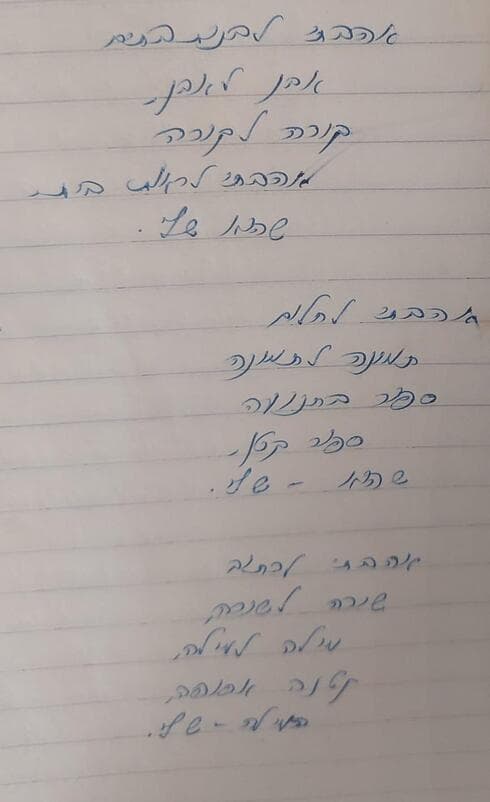 אהבתי לבנות בתים
אבן לאבן,
קורה לקורה
אהבתי לראות בית
שהוא שלי.
אהבתי לחלום
תמונה לתמונה
ספור בתנועה
ספור קטן,
שהוא - שלי.
אהבתי לכתוב
שורה לשורה,
מילה למילה,
קטנה אפופה,
המילה - שלי.